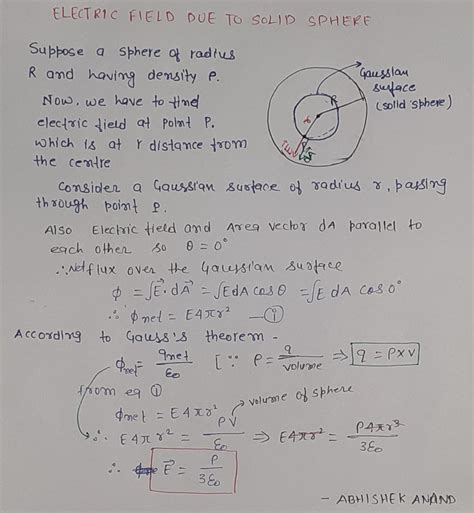 ELECTRIC FIELD DUE TO SOLID SPHERE
Suppose a sphere of radius
R and having density ρ.
Now, we have to find
electric field at point P.
which is at r distance from
the centre
Gaussian
surface
(solid sphere)
R
Consider a Gaussian surface of radius r, passing
through point P.
Also Electric field and Area vector dA parallel to
each other so θ = 0°
∴ Net flux over the Gaussian surface
ϕ = ∫E⃗·dA⃗ = ∫EdA cosθ = ∫E dA cos0°
∴ ϕnet = E4πr² — ①
According to Gauss's theorem -
ϕnet = qnet/ε₀ [∵ ρ = q/volume ⇒ q = ρ×V
from eq ①
ϕnet = E4πr²
volume of sphere
∴ E4πr² = ρV/ε₀ ⇒ E4πr² = ρ4πr³/3ε₀
∴ E⃗ = ρ/3ε₀
- ABHISHEK ANAND